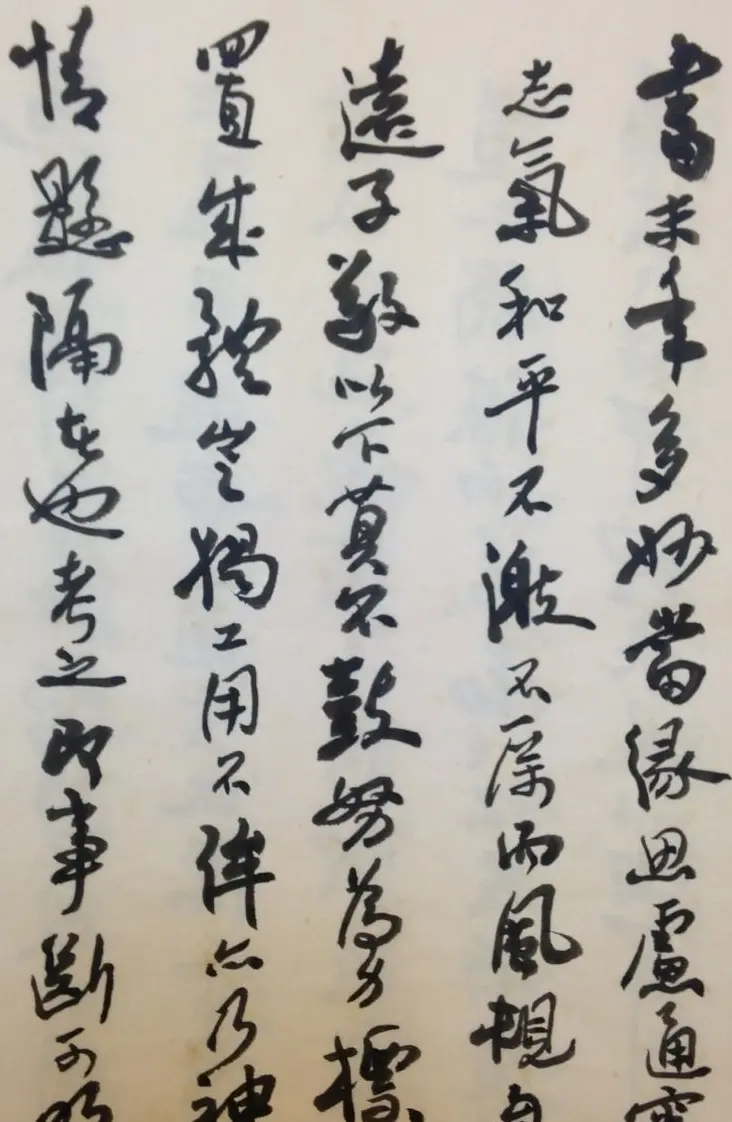 書末年多妙當緣思慮通審
志氣和平不激不厲而風規自
遠子敬以下莫不鼓努為力標
置成體豈獨工用不侔亦乃神
情懸隔者也考之即事斷可明